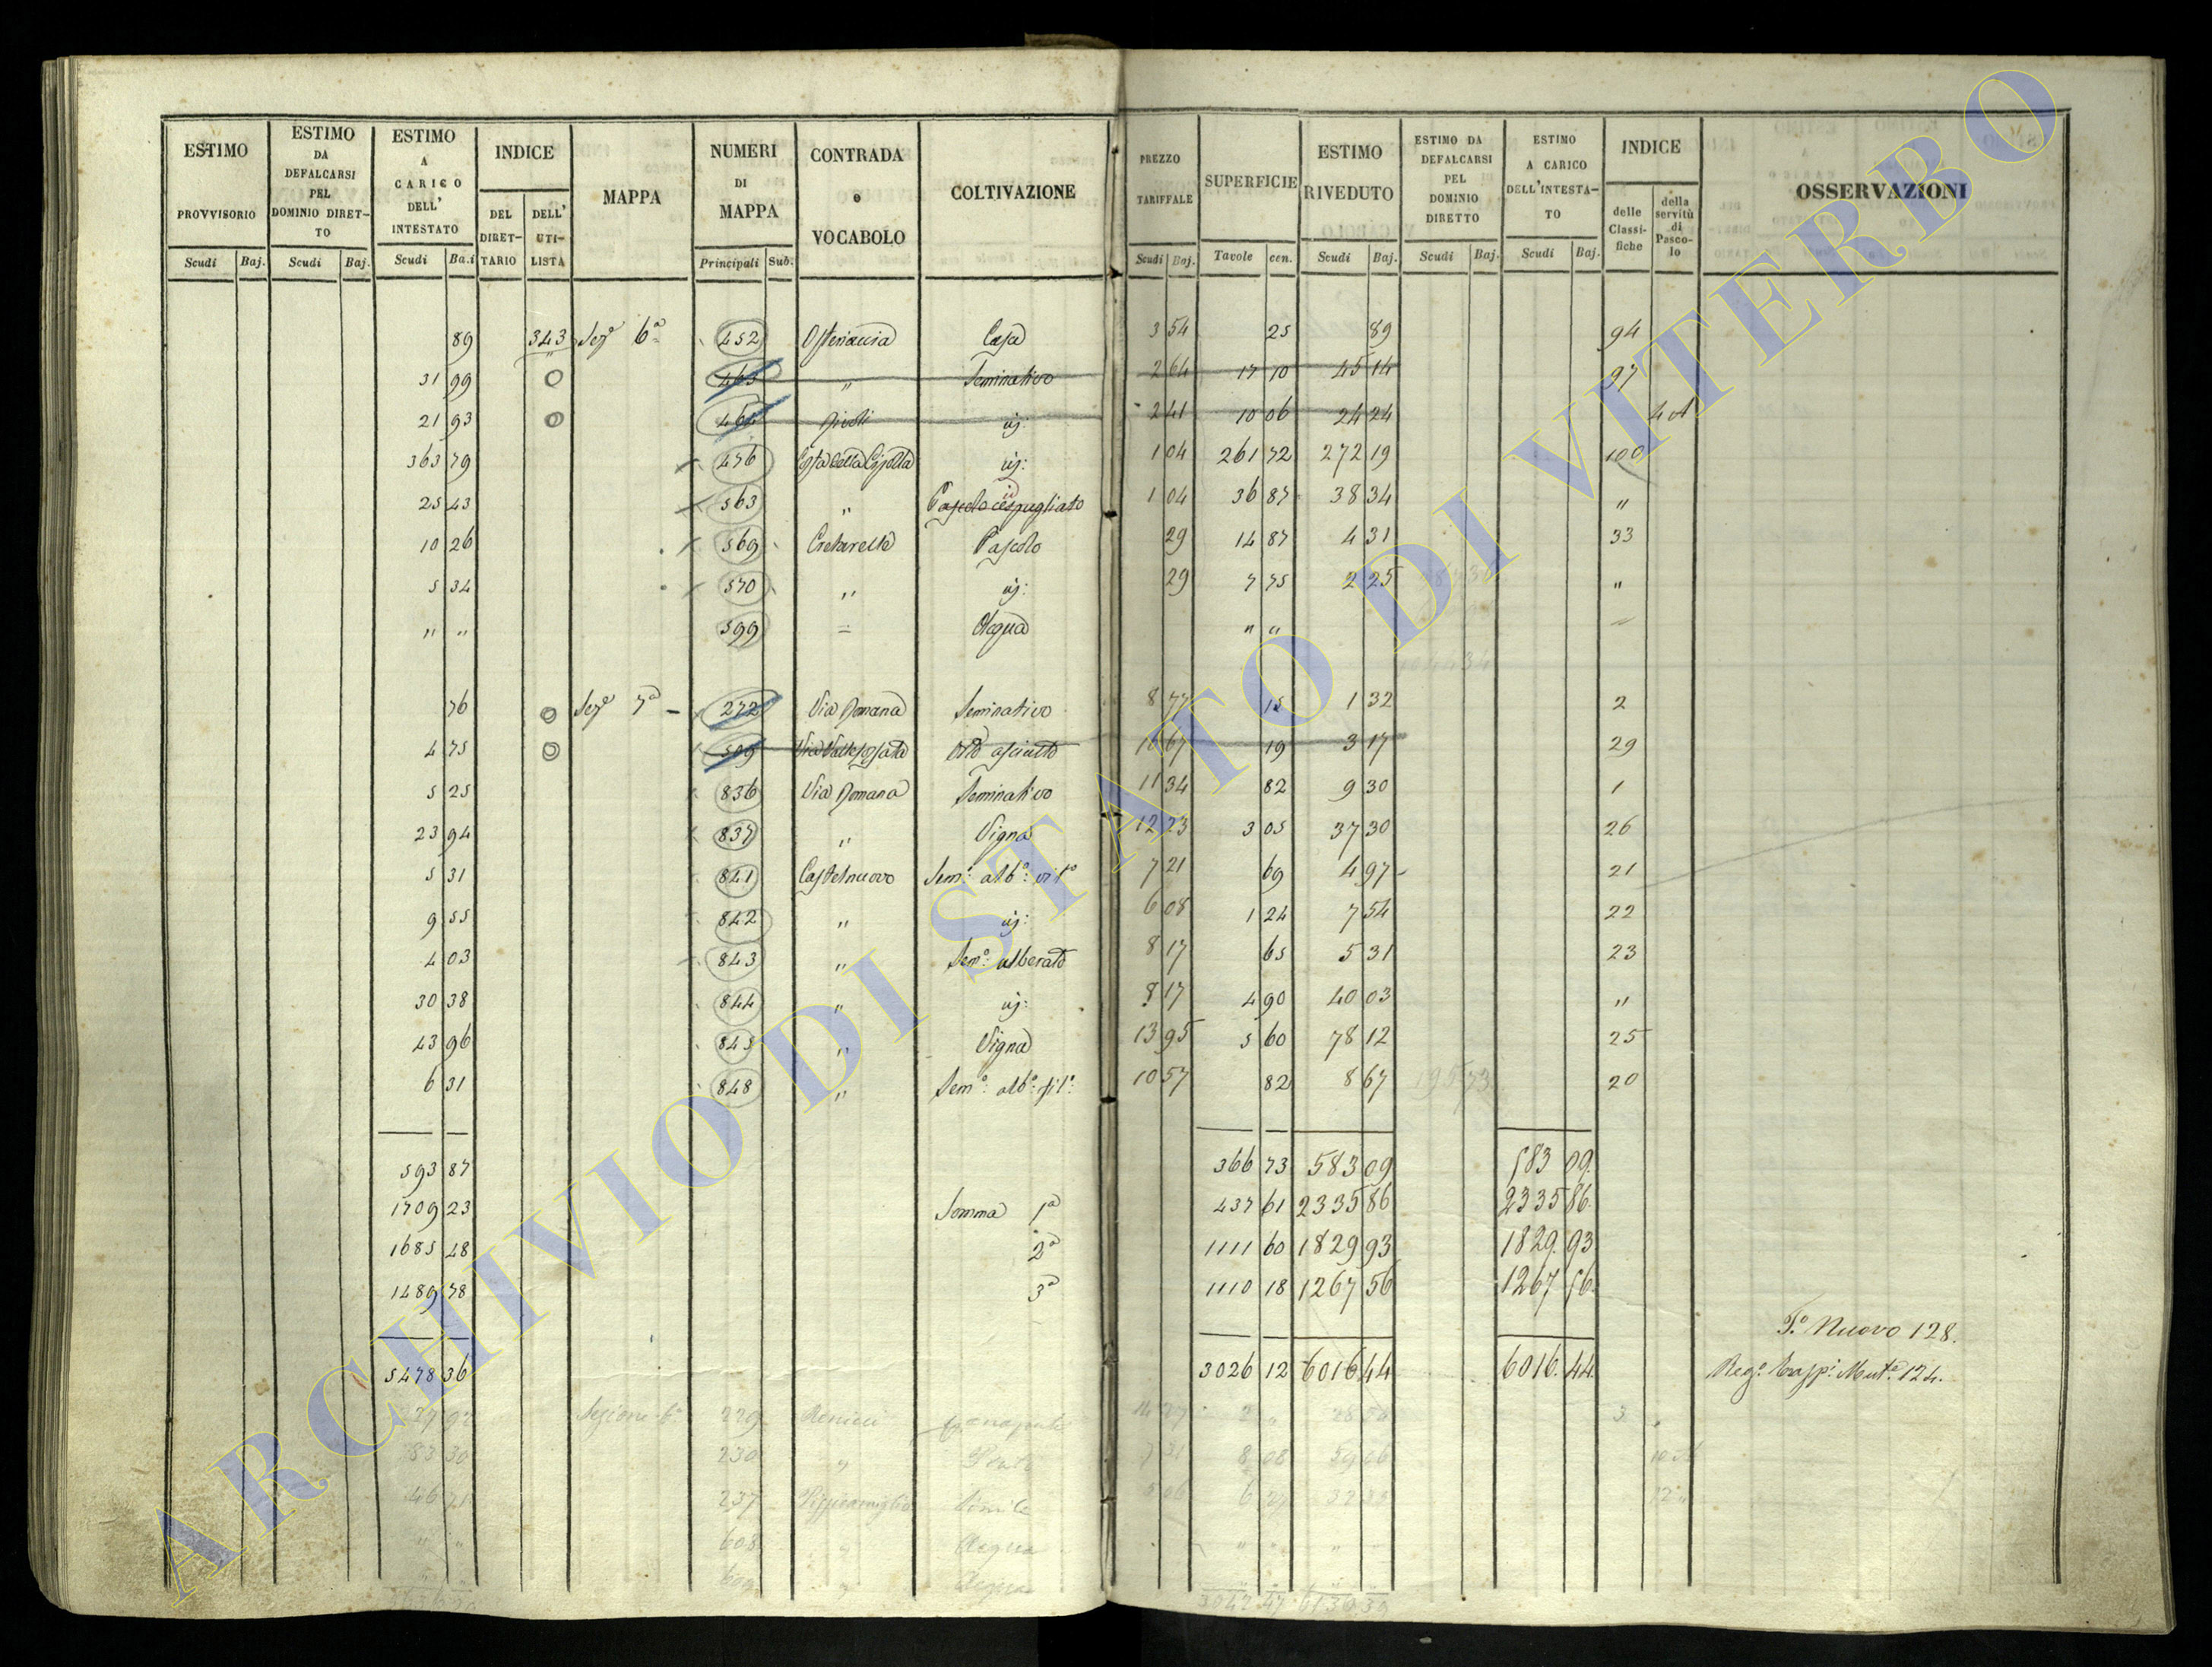 ESTIMO PROVVISORIO Scudi Baj.
ESTIMO DA DEFALCARSI PEL DOMINIO DIRETTO Scudi Baj.
ESTIMO A CARICO DELL' INTESTATO Scudi Ba.i
INDICE DEL DIRETTARIO DELL' UTILISTA
MAPPA
NUMERI DI MAPPA Principali Sub.
CONTRADA e VOCABOLO
COLTIVAZIONE
PREZZO TARIFFALE Scudi Baj.
SUPERFICIE Tavole cen.
ESTIMO RIVEDUTO Scudi Baj.
ESTIMO DA DEFALCARSI PEL DOMINIO DIRETTO Scudi Baj.
ESTIMO A CARICO DELL'INTESTATO Scudi Baj.
INDICE delle Classifiche della servitù di Pascolo
OSSERVAZIONI
89 343 Sez.e 6a 452 Casa 3 54 25 89 94
31 99 463 " Seminativo 2 64 17 10 45 14 97
21 93 464 id: 2 41 10 06 24 24
363 79 476 id: 1 04 261 72 272 19 100
25 43 563 " Pascolo cespugliato 1 04 36 87 38 34 "
10 26 569 Cretarella Pascolo 29 14 87 4 31 33
5 34 570 " id: 29 7 75 2 25 "
" " 599 = Acqua " "
76 Sez.e 7a 272 Via Romana Seminativo 8 77 15 1 32 2
4 75 509 Orto asciutto 16 67 19 3 17 29
5 25 836 Via Romana Seminativo 11 34 82 9 30 1
23 94 837 " Vigna 12 23 3 05 37 30 26
5 31 841 Castelnuovo Sem.o alb.o vit.o 7 21 69 4 97 21
9 55 842 " id: 6 08 1 24 7 54 22
4 03 843 " Sem.o alberato 8 17 65 5 31 23
30 38 844 " id: 8 17 4 90 40 03 "
43 96 845 " Vigna 13 95 5 60 78 12 25
6 31 848 " Sem.o alb.o vit.o 10 57 82 8 67 20
593 87 366 73 583 09 583 09
1709 23 Somma 1a 437 61 2335 86 2335 86
1685 48 2a 1111 60 1829 93 1829 93
1489 78 3a 1110 18 1267 56 1267 56
T.o Nuovo 128.
5478 36 3026 12 6016 44 6016 44 Reg.o Mut.e 124.
Sezione 6a 229
83 30 230 " Prato 8 08 59 06
46 71 237 Simile
" " 608 " Acqua " "
609 " Acqua
ARCHIVIO DI STATO DI VITERBO